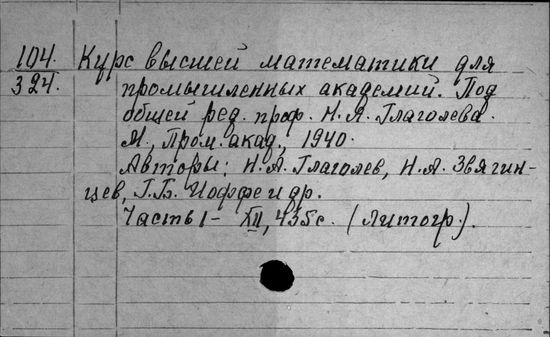 104. Курс высшей математики для
324. промышленных академий. Под
общей ред. проф. Н.А. Глаголева.
М., Пром. акад., 1940.
Авторы: Н.А. Глаголев, Н.А. Звягин-
цев, Г.Б. Иоффе и др.
Часть I - XII, 435 с. (Литогр.).